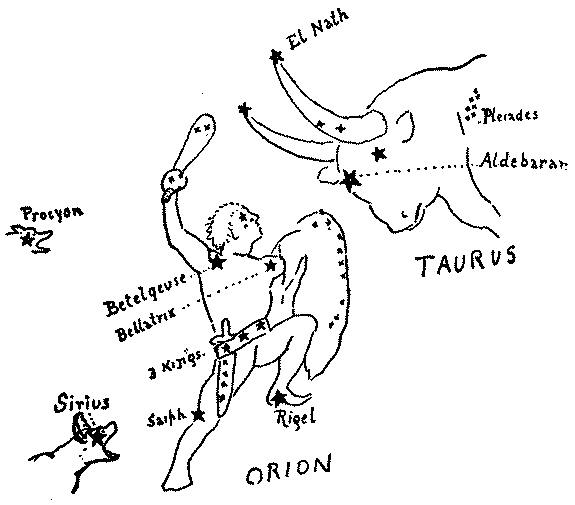 El Nath
Pleiades
Aldebaran
Procyon
TAURUS
Betelgeuse
Bellatrix
3 Kings.
Sirius
Saiph
Rigel
ORION